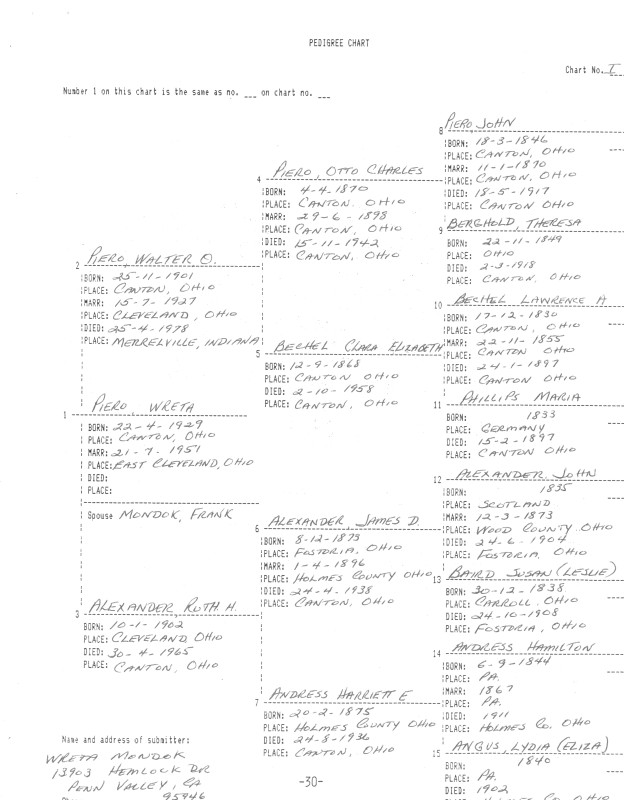 PEDIGREE CHART
Chart No. I
Number 1 on this chart is the same as no. ___ on chart no. ___
8 PIERO, JOHN
BORN: 18-3-1846
PLACE: CANTON, OHIO
MARR: 11-1-1870
PLACE: CANTON, OHIO
DIED: 18-5-1917
PLACE: CANTON OHIO
4 PIERO, OTTO CHARLES
BORN: 4-4-1870
PLACE: CANTON. OHIO
MARR: 29-6-1898
PLACE: CANTON, OHIO
DIED: 15-11-1942
PLACE: CANTON, OHIO
9 BERGHOLD, THERESA
BORN: 22-11-1849
PLACE: OHIO
DIED: 2-3-1918
PLACE: CANTON, OHIO
2 PIERO, WALTER O.
BORN: 25-11-1901
PLACE: CANTON, OHIO
MARR: 15-7-1927
PLACE: CLEVELAND, OHIO
DIED: 25-4-1978
PLACE: MERRELVILLE, INDIANA
10 BECHEL LAWRENCE A
BORN: 17-12-1830
PLACE: CANTON, OHIO
MARR: 22-11-1855
PLACE: CANTON OHIO
DIED: 24-1-1897
PLACE: CANTON OHIO
5 BECHEL CLARA ELIZABETH
BORN: 12-9-1868
PLACE: CANTON OHIO
DIED: 2-10-1958
PLACE: CANTON, OHIO
11 PHILLIPS MARIA
BORN: 1833
PLACE: GERMANY
DIED: 15-2-1897
PLACE: CANTON OHIO
1 PIERO, WRETA
BORN: 22-4-1929
PLACE: CANTON, OHIO
MARR: 21-7-1951
PLACE: EAST CLEVELAND, OHIO
DIED:
PLACE:
Spouse MONDOK, FRANK
12 ALEXANDER, JOHN
BORN: 1835
PLACE: SCOTLAND
MARR: 12-3-1873
PLACE: WOOD COUNTY OHIO
DIED: 24-6-1904
PLACE: FOSTORIA, OHIO
6 ALEXANDER, JAMES D.
BORN: 8-12-1873
PLACE: FOSTORIA, OHIO
MARR: 1-4-1896
PLACE: HOLMES COUNTY OHIO
DIED: 24-4-1938
PLACE: CANTON, OHIO
13 BAIRD SUSAN (LESLIE)
BORN: 30-12-1838
PLACE: CARROLL. OHIO
DIED: 24-10-1908
PLACE: FOSTORIA, OHIO
3 ALEXANDER, RUTH H.
BORN: 10-1-1902
PLACE: CLEVELAND, OHIO
DIED: 30-4-1965
PLACE: CANTON, OHIO
14 ANDRESS HAMILTON
BORN: 6-9-1844
PLACE: PA.
MARR: 1867
PLACE: PA.
DIED: 1911
PLACE: HOLMES Co. OHIO
7 ANDRESS HARRIETT E
BORN: 20-2-1875
PLACE: HOLMES COUNTY OHIO
DIED: 24-8-1936
PLACE: CANTON, OHIO
15 ANGUS, LYDIA (ELIZA)
BORN: 1840
PLACE: PA.
DIED: 1902
Name and address of submitter:
WRETA MONDOK
13903 HEMLOCK DR
PENN VALLEY, CA
95946
-30-